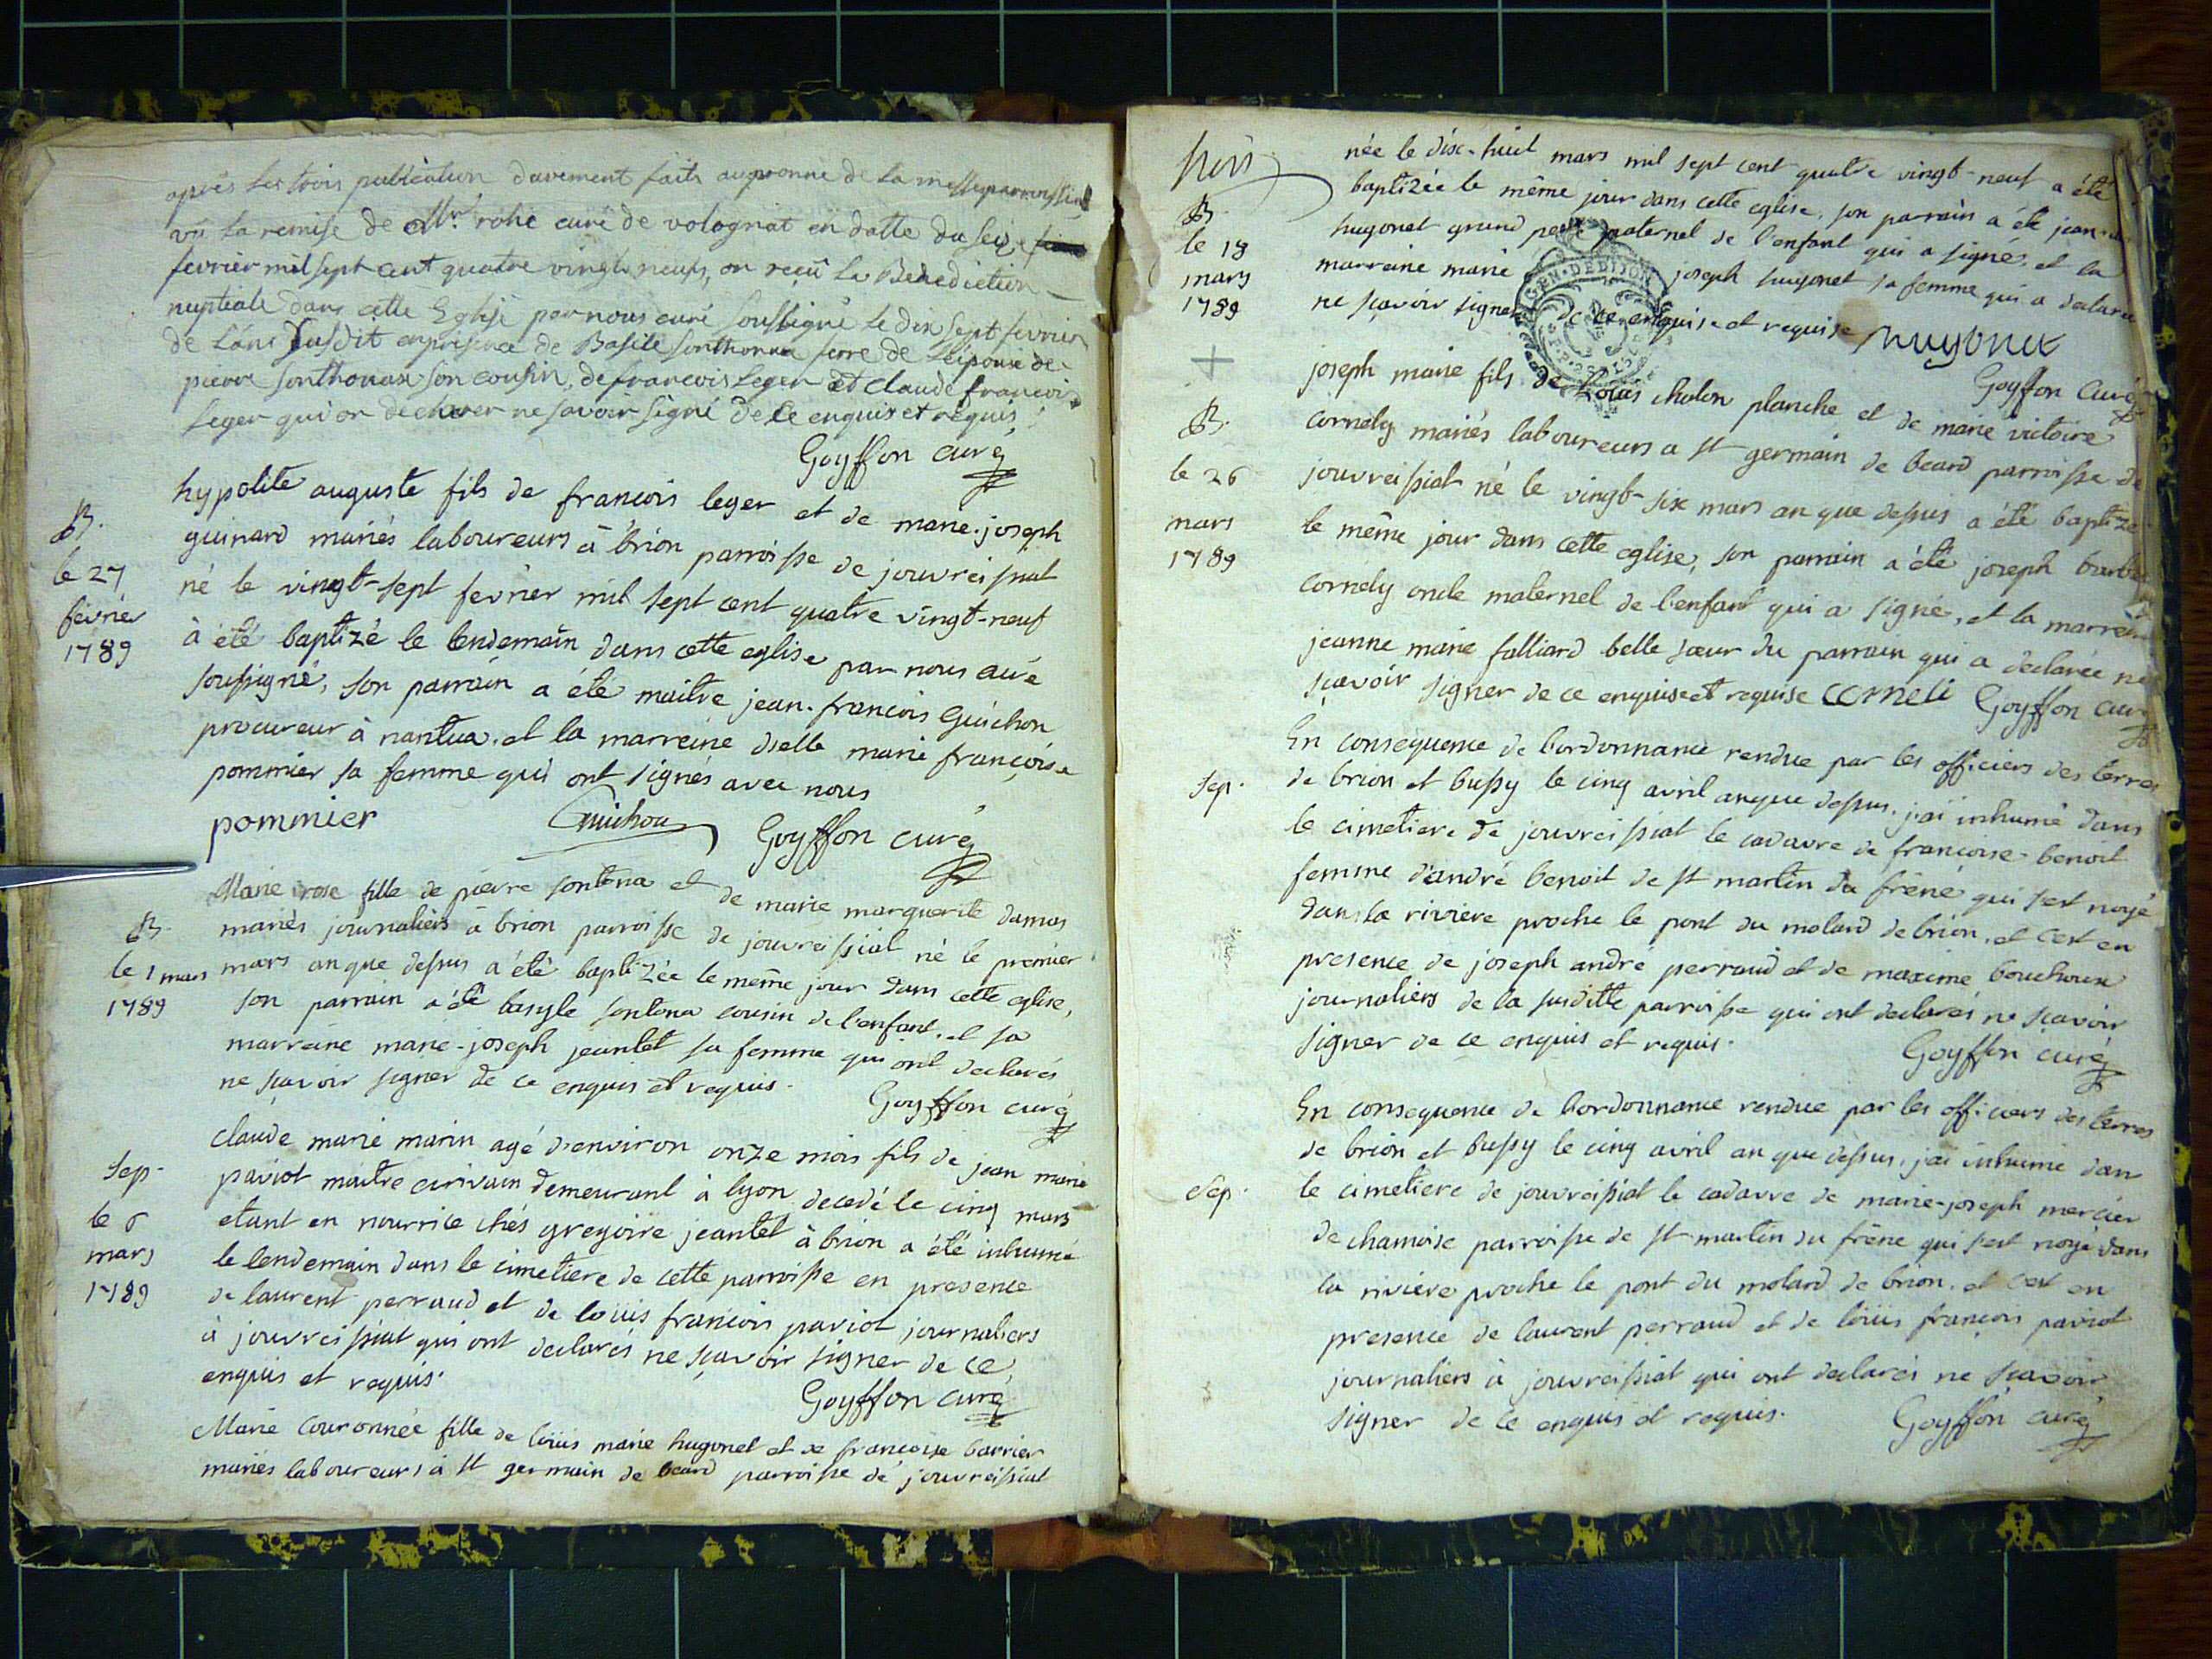 après les trois publication duement faits au pronne de la messe parroissial
vû la remise de Mr. rohé curé de volognat en datte du seize
fevrier mil sept cent quatre vingts neufs, on reçü la Bénédiction
nuptiale dans cette Eglise par nous curé soussigné le dix sept fevrier
de l'ans susdit en présence de Basile sonthonax frere de l'epouse de
pierre sonthonax son cousin, de francois leger et claude francois
leger qui on declarer ne savoir signé de ce enquis et requis
Goyffon curé
B.
le 27
fevrier
1789
hypolite auguste fils de francois leger et de marie-joseph
guinard mariés laboureurs à brion parroisse de jouvreissiat
né le vingt-sept fevrier mil sept cent quatre vingt-neuf
à été baptizé le lendemain dans cette eglise par nous curé
soussigné, son parrain a été maitre jean-francois Guichon
procureur à nantua, et la marreine dselle marie françoise
pommier sa femme qui ont signés avec nous
pommier Guichon Goyffon curé
B.
le 1 mars
1789
Marie rose fille de pierre sontona et de marie marguerite damas
mariés journaliers à brion parroisse de jouvreissiat né le premier
mars an que dessus a été baptizée le même jour dans cette eglise,
son parrain a été basyle sontona cousin de l'enfant, et sa
marreine marie-joseph jeantet sa femme qui ont declarés
ne sçavoir signer de ce enquis et requis.
Goyffon curé
Sep.
le 6
mars
1789
claude marie marin agé d'environ onze mois fils de jean marie
paviot maitre ecrivain demeurant à lyon decedé le cinq mars
etant en nourrice chés gregoire jeantet à brion a été inhumé
le lendemain dans le cimetiere de cette parroisse en presence
de laurent perraud et de loüis francois paviot journaliers
à jouvreissiat qui ont declarés ne sçavoir signer de ce
enquis et requis.
Goyffon curé
Marie couronnée fille de loüis marie hugonet et de francoise barrier
mariés laboureurs à st germain de beard parroisse de jouvreissiat
B.
le 18
mars
1789
née le dix-huit mars mil sept cent quatre vingt-neuf a été
baptizée le même jour dans cette eglise, son parrain a été jean
hugonet grand pere paternel de l'enfant qui a signé, et la
marreine marie joseph hugonet sa femme qui a declaré
ne sçavoir signer de ce enquise et requise hugonet
Goyffon curé
GEN. DE DIJON
B.
le 26
mars
1789
joseph marie fils de Loüis chalon planche et de marie victoire
cornely mariés laboureurs a st germain de beard parroisse de
jouvreissiat né le vingt-six mars an que dessus a été baptizé
le même jour dans cette eglise, son parrain a été joseph
cornely oncle maternel de l'enfant qui a signé, et la marreine
jeanne marie falliard belle sœur du parrain qui a declarée ne
sçavoir signer de ce enquise et requise Corneli Goyffon cur
Sep.
En consequence de l'ordonnance rendue par les officiers des terres
de brion et bussy le cinq avril an que dessus, j'ai inhumé dans
le cimetiere de jouvreissiat le cadavre de francoise-benoit
femme d'andré benoit de st martin du frêne qui s'est noyé
dans la riviere proche le pont du molard de brion, et c'est en
presence de joseph andré perraud et de maxime bouchoux
journaliers de la susditte parroisse qui ont declarés ne sçavoir
signer de ce enquis et requis.
Goyffon curé
Sep.
En consequence de l'ordonnance rendue par les officiers des terres
de brion et bussy le cinq avril an que dessus, j'ai inhumé dan
le cimetiere de jouvreissiat le cadavre de marie-joseph mercier
de chamoise parroisse de st martin du frêne qui s'est noyé dans
la riviere proche le pont du molard de brion, et c'est en
presence de laurent perraud et de loüis françois paviot
journaliers à jouvreissiat qui ont declarés ne sçavoir
signer de ce enquis et requis.
Goyffon curé